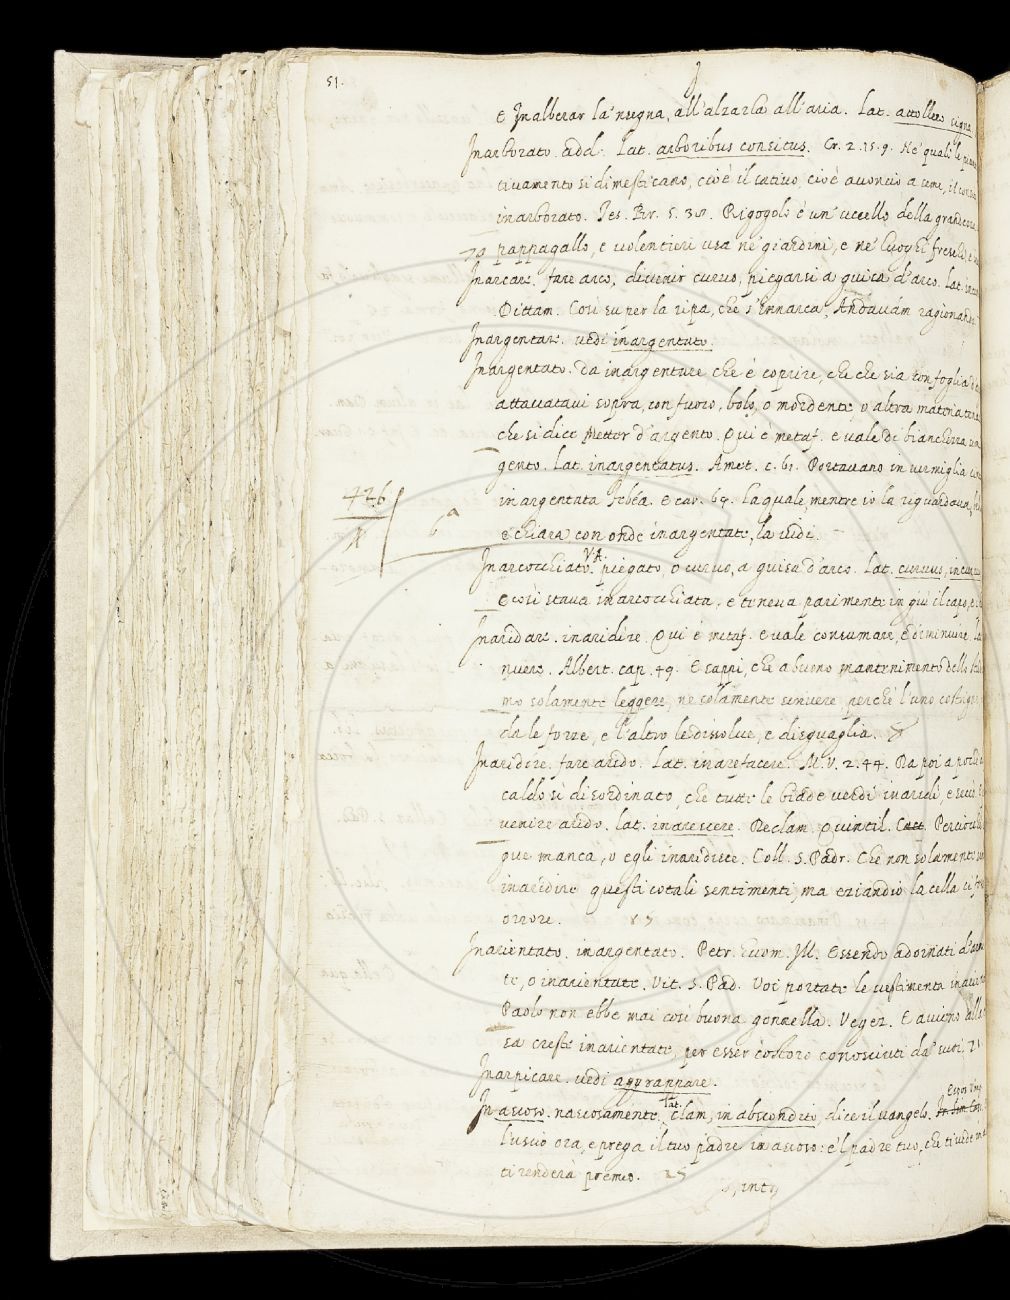 51.
E Inalberar la 'nsegna, all'alzarla all'aria. Lat. attollere signa
Inarborato. add. Lat. arboribus consitus. Cr. 2. 15. 9. Ne' quali le piante
tivamente si dimesticano, cioè il cativo, cioè a
inarborato. Tes. Br. 5. Rigogolo è un' uccello della grandezza
pappagallo, e volentieri usa ne' giardini, e ne' luoghi freschi, e
Inarcare. fare arco, divenir curvo, piegarsi a guisa d'arco. Lat.
Dittam. Così su per la ripa, che s'innarca, Andavám ragionando.
Inargentare. vedi inargentato.
Inargentato. da inargentare che è coprire, che che sia con foglia d'
attaccatavi sopra, con fuoco, bolo, o mordente o altra materia
che si dice Metter d'argento. Qui è metaf. e vale di bianchezza
gento. Lat. inargentatus. Amet. c. 61. Portavano in vermiglia
inargentata Febéa. E car. 69. La quale, mentre io la riguardava,
e chiara, con onde inargentate, la vidi.
426
6a
Inarcocchiato. V. A. piegato, o curvo, a guisa d'arco. Lat. curvus,
E così stava inarcocchiata, e teneva parimente in giù il capo,
Inaridare. inaridire. Qui è metaf. e vale consumare, e diminuire.
nuere. Albert. cap. 49. E sappi, che a buono mantenimento dello
mo solamente leggere, ne solamente scrivere, perchè l'uno
da le forze, e l'altro le dissolve, e disguaglia.
Inaridire. fare arido. Lat. inarefacere. M. V. 2. 44. Da poi a pochi
caldo sì disordinato, che tutte le biade verdi inaridì, e seccò.
venire arido. Lat. inarescere. Declam. Quintil. C.
que manca, o egli inaridisce. Coll. S. Padr. Che non solamente
inaridire questi cotali sentimenti, ma eziandio la cella
orrore.
Inarientato. inargentato. Petr. Uom. Ill. Essendo adornati d'
te, o inarientate. Vit. S. Pad. Voi portate le vestimenta
Paolo non ebbe mai così buona gonnella. Vegez. E
sa creste inarientate, per esser costoro conosciuti da'
Inarpicare. vedi aggrappare.
In ascoso. nascosamente, Lat. clam, in abscondito, dice il vangelo.
l'uscio ora, e prega il tuo padre in ascoso: e 'l padre tuo, che ti vede
ti renderà premio. 25